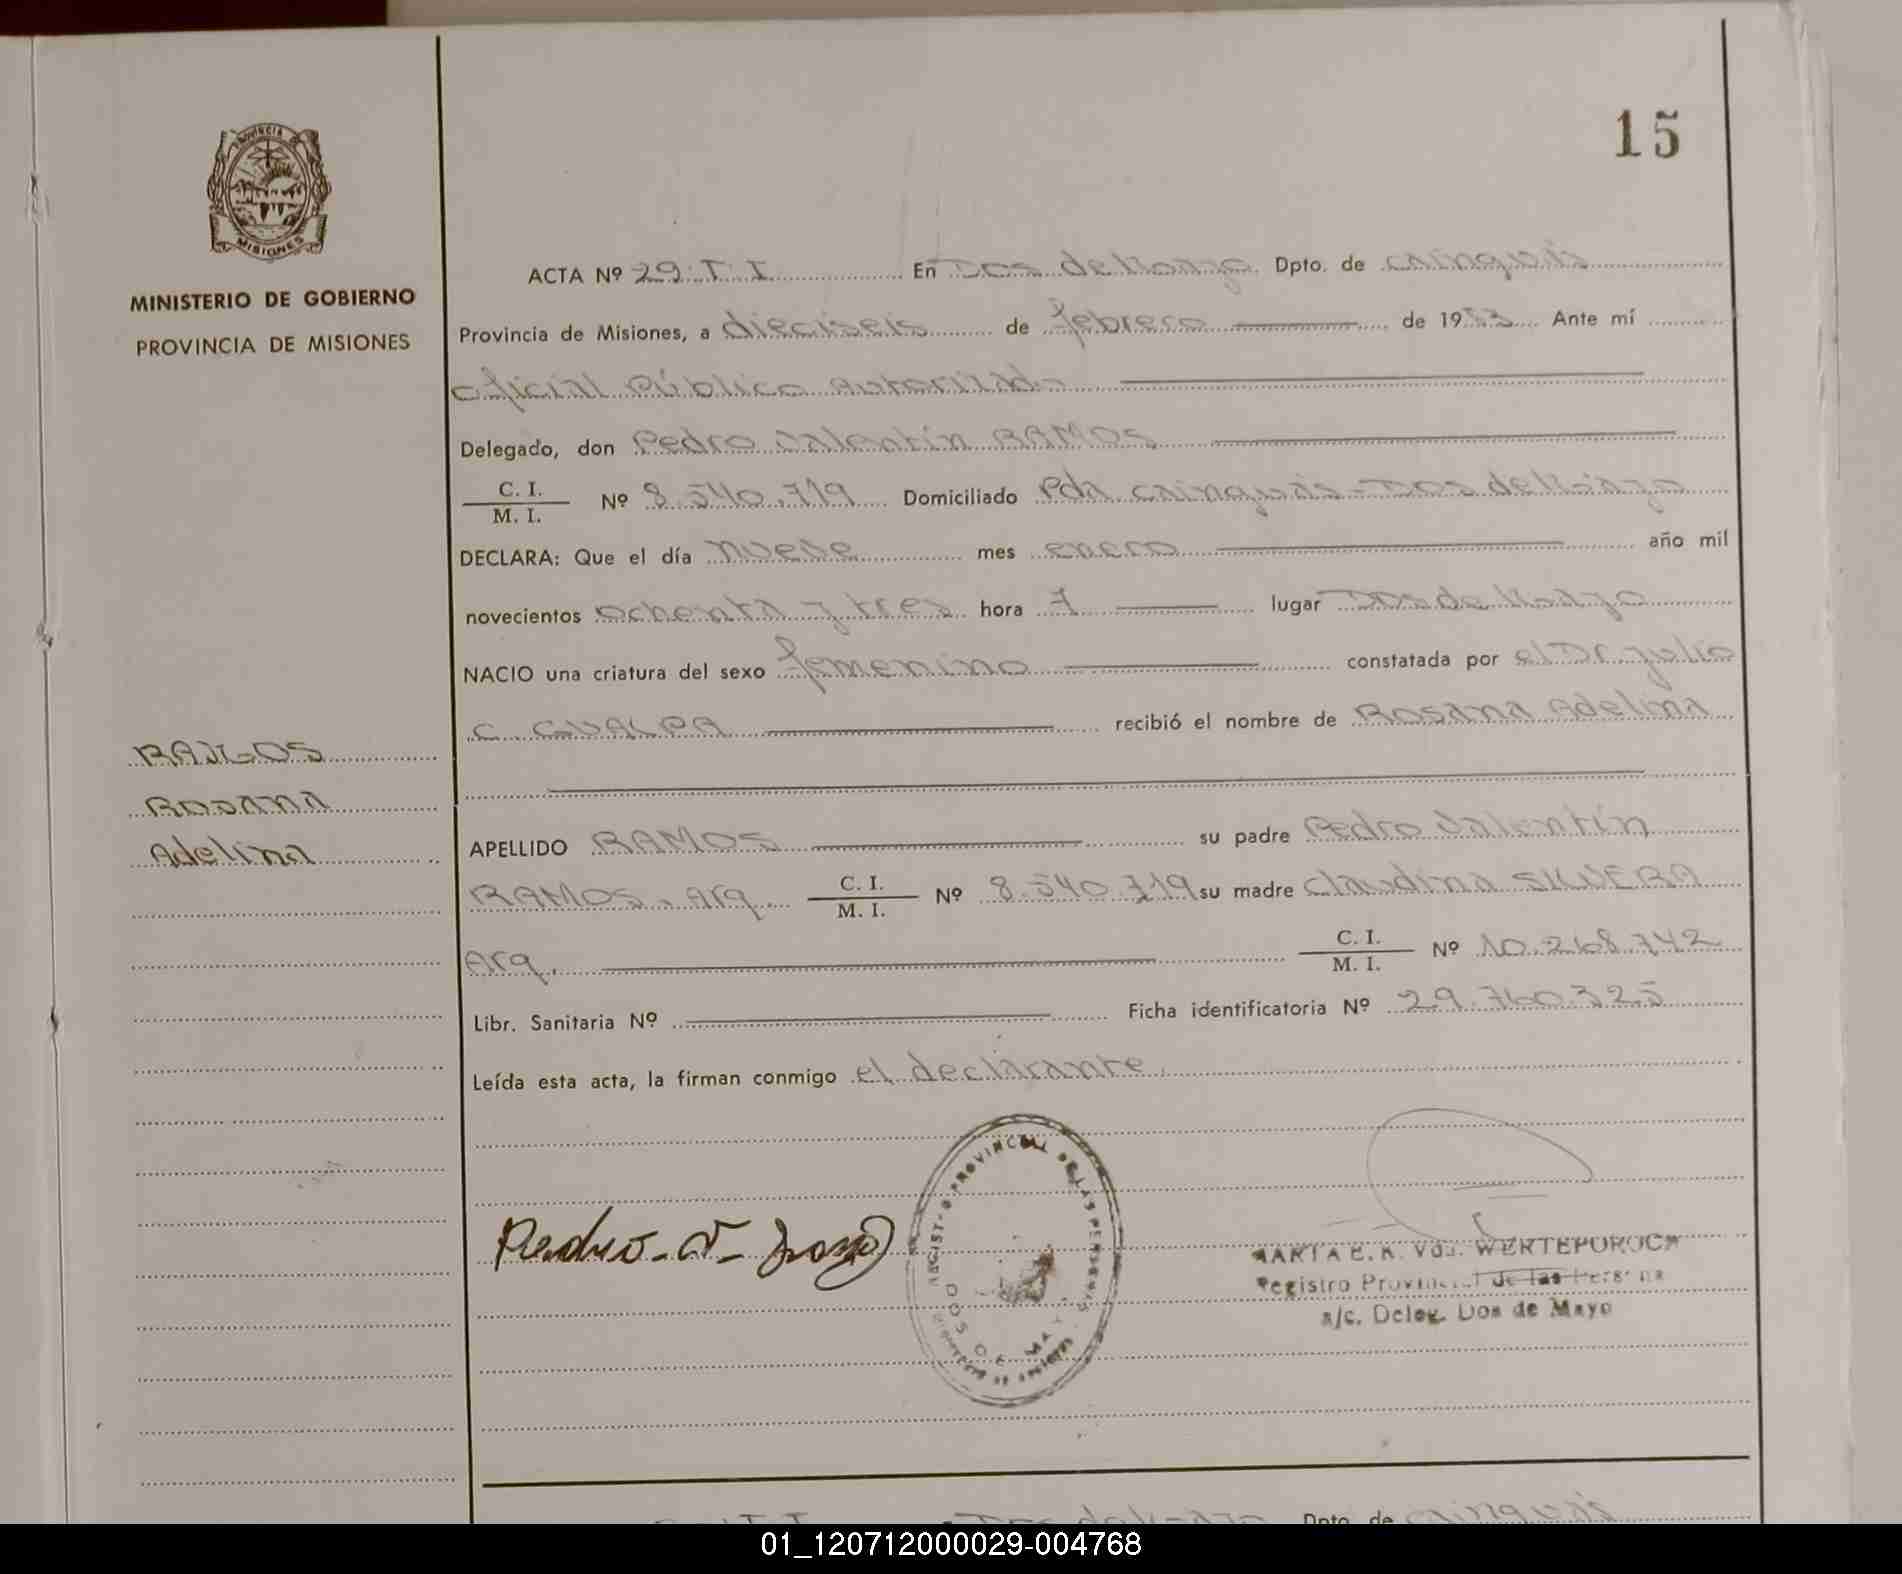 15
PROVINCIA DE
MISIONES
MINISTERIO DE GOBIERNO
PROVINCIA DE MISIONES
RAMOS
Rosana
Adelina
ACTA Nº 29. T. I En Dos de Mayo Dpto. de Cainguás
Provincia de Misiones, a dieciseis de febrero de 1983 Ante mí
Oficial Público Autorizado
Delegado, don Pedro Valentín RAMOS
C. I.
M. I. Nº 8.540.719 Domiciliado Pda Cainguás - Dos de Mayo
DECLARA: Que el día nueve mes enero año mil
novecientos ochenta y tres hora 7 lugar Dos de Mayo
NACIO una criatura del sexo femenino constatada por el Dr. Julio
C. GUALPA recibió el nombre de Rosana Adelina
APELLIDO RAMOS su padre Pedro Valentín
RAMOS. Arg. C. I.
M. I. Nº 8.540.719 su madre Claudina
Arg. C. I.
M. I. Nº 10.268.742
Libr. Sanitaria Nº Ficha identificatoria Nº 29.760.325
Leída esta acta, la firman conmigo el declarante.
Pedro - V -
PROVINCIAL DE LAS PERSONAS
DOS DE MAYO
MARTA E. K. Vda. WERTEPOROCH
Registro Provincial de las Personas
a/c. Deleg. Dos de Mayo
Dos de Mayo Dpto. de Cainguás
01_120712000029-004768